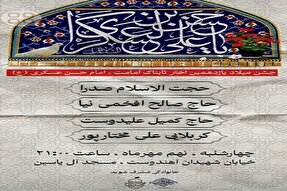 یا حسن بن علی العسکری
جشن میلاد یازدهمین اختر تابناک امامت ، امام حسن عسکری (ع)
حجت الاسلام صدرا
حاج صالح افخمی نیا
حاج کمیل علیدوست
کربلایی علی مختارپور
چهارشنبه ، نهم مهرماه ، ساعت ۲۱:۰۰
خیابان شهیدان آهندوست ، مسجد ال یاسین
خانوادگی مشرف شوید